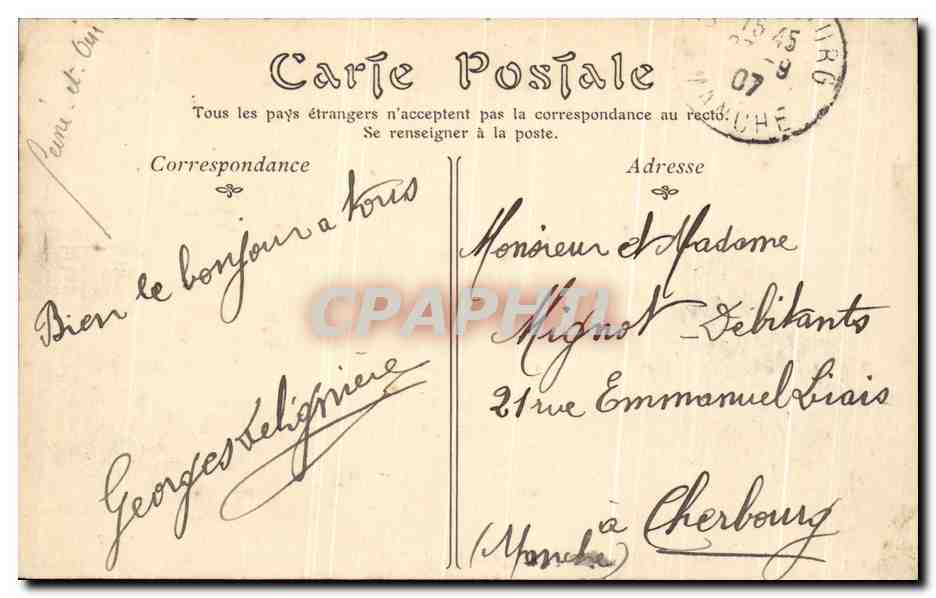 Seine-et-Oise
Carte Postale
Tous les pays étrangers n'acceptent pas la correspondance au recto.
Se renseigner à la poste.
Correspondance
Adresse
Bien le bonjour a Vous
Georges Delignière
Monsieur et Madame
Mignot Débitants
21 rue Emmanuel Liais
à Cherbourg
(Manche)
15 45
9
07
URG
MANCHE
CPAPHIL